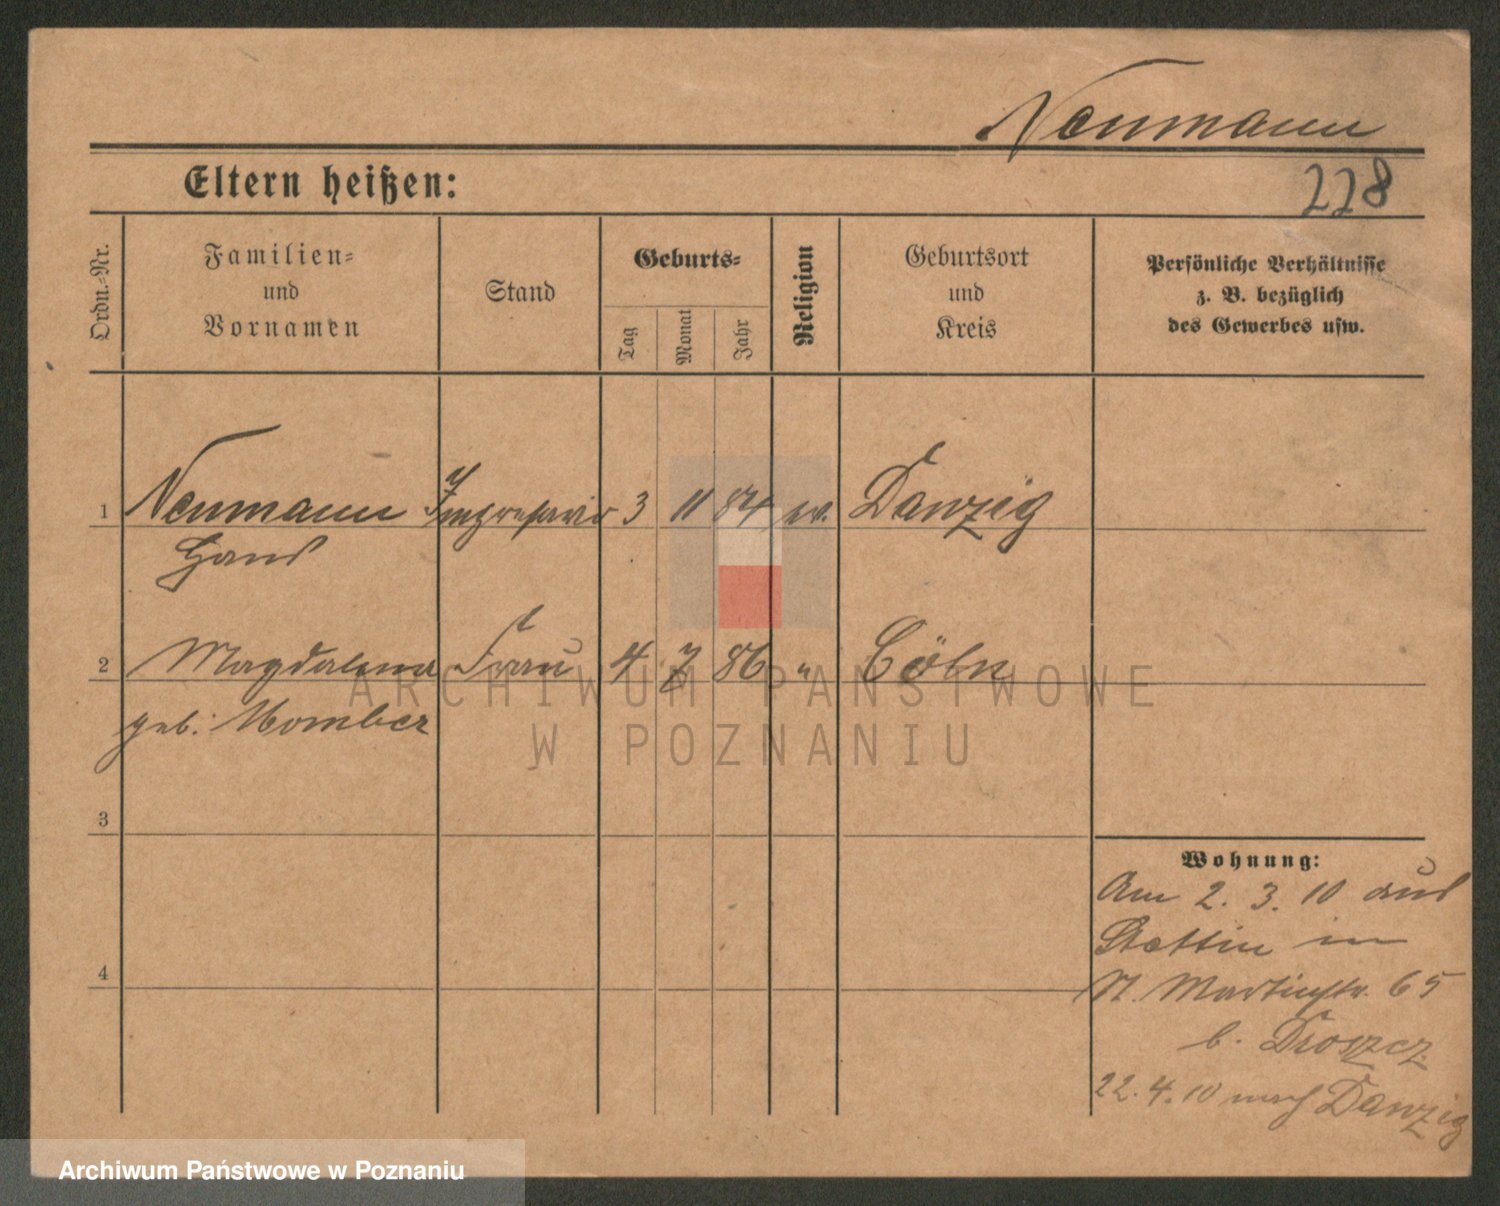 Neumann
Eltern heißen:
228
Ordn.-Nr.
Familien- und Vornamen
Stand
Geburts-
Tag
Monat
Jahr
Religion
Geburtsort und Kreis
Persönliche Verhältnisse
z. B. bezüglich
des Gewerbes usw.
1 Neumann Impresario 3 11 84 ev. Danzig
Hans
2 Magdalena Frau 4 7 86 " Cöln
geb. Momber
3
4
Wohnung:
Am 2. 3. 10 aus
Stettin in
St. Martinstr. 65
b. Droszcz
22. 4. 10 nach Danzig
ARCHIWUM PAŃSTWOWE
W POZNANIU
Archiwum Państwowe w Poznaniu